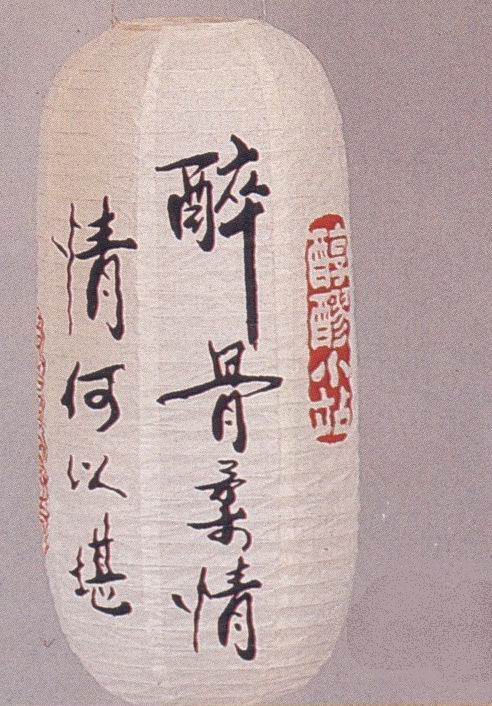 醇醪小站
醉骨柔情
情何以堪